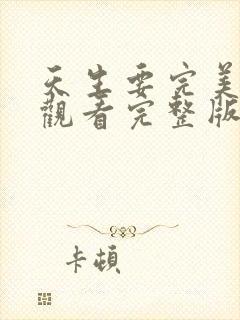 天生要完美
觀看完整版
卡頓